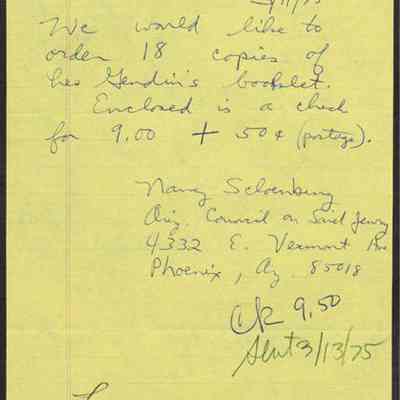 We would like to
order 18 copies of
Leo Gendin's booklet.
Enclosed is a check
for 9.00 + 50¢ (postage).
Nancy Schoenburg
Ariz. Council on Soviet Jewry
4332 E. Vermont Ave
Phoenix, Az 85018
Ck 9.50
Sent 3/13/75